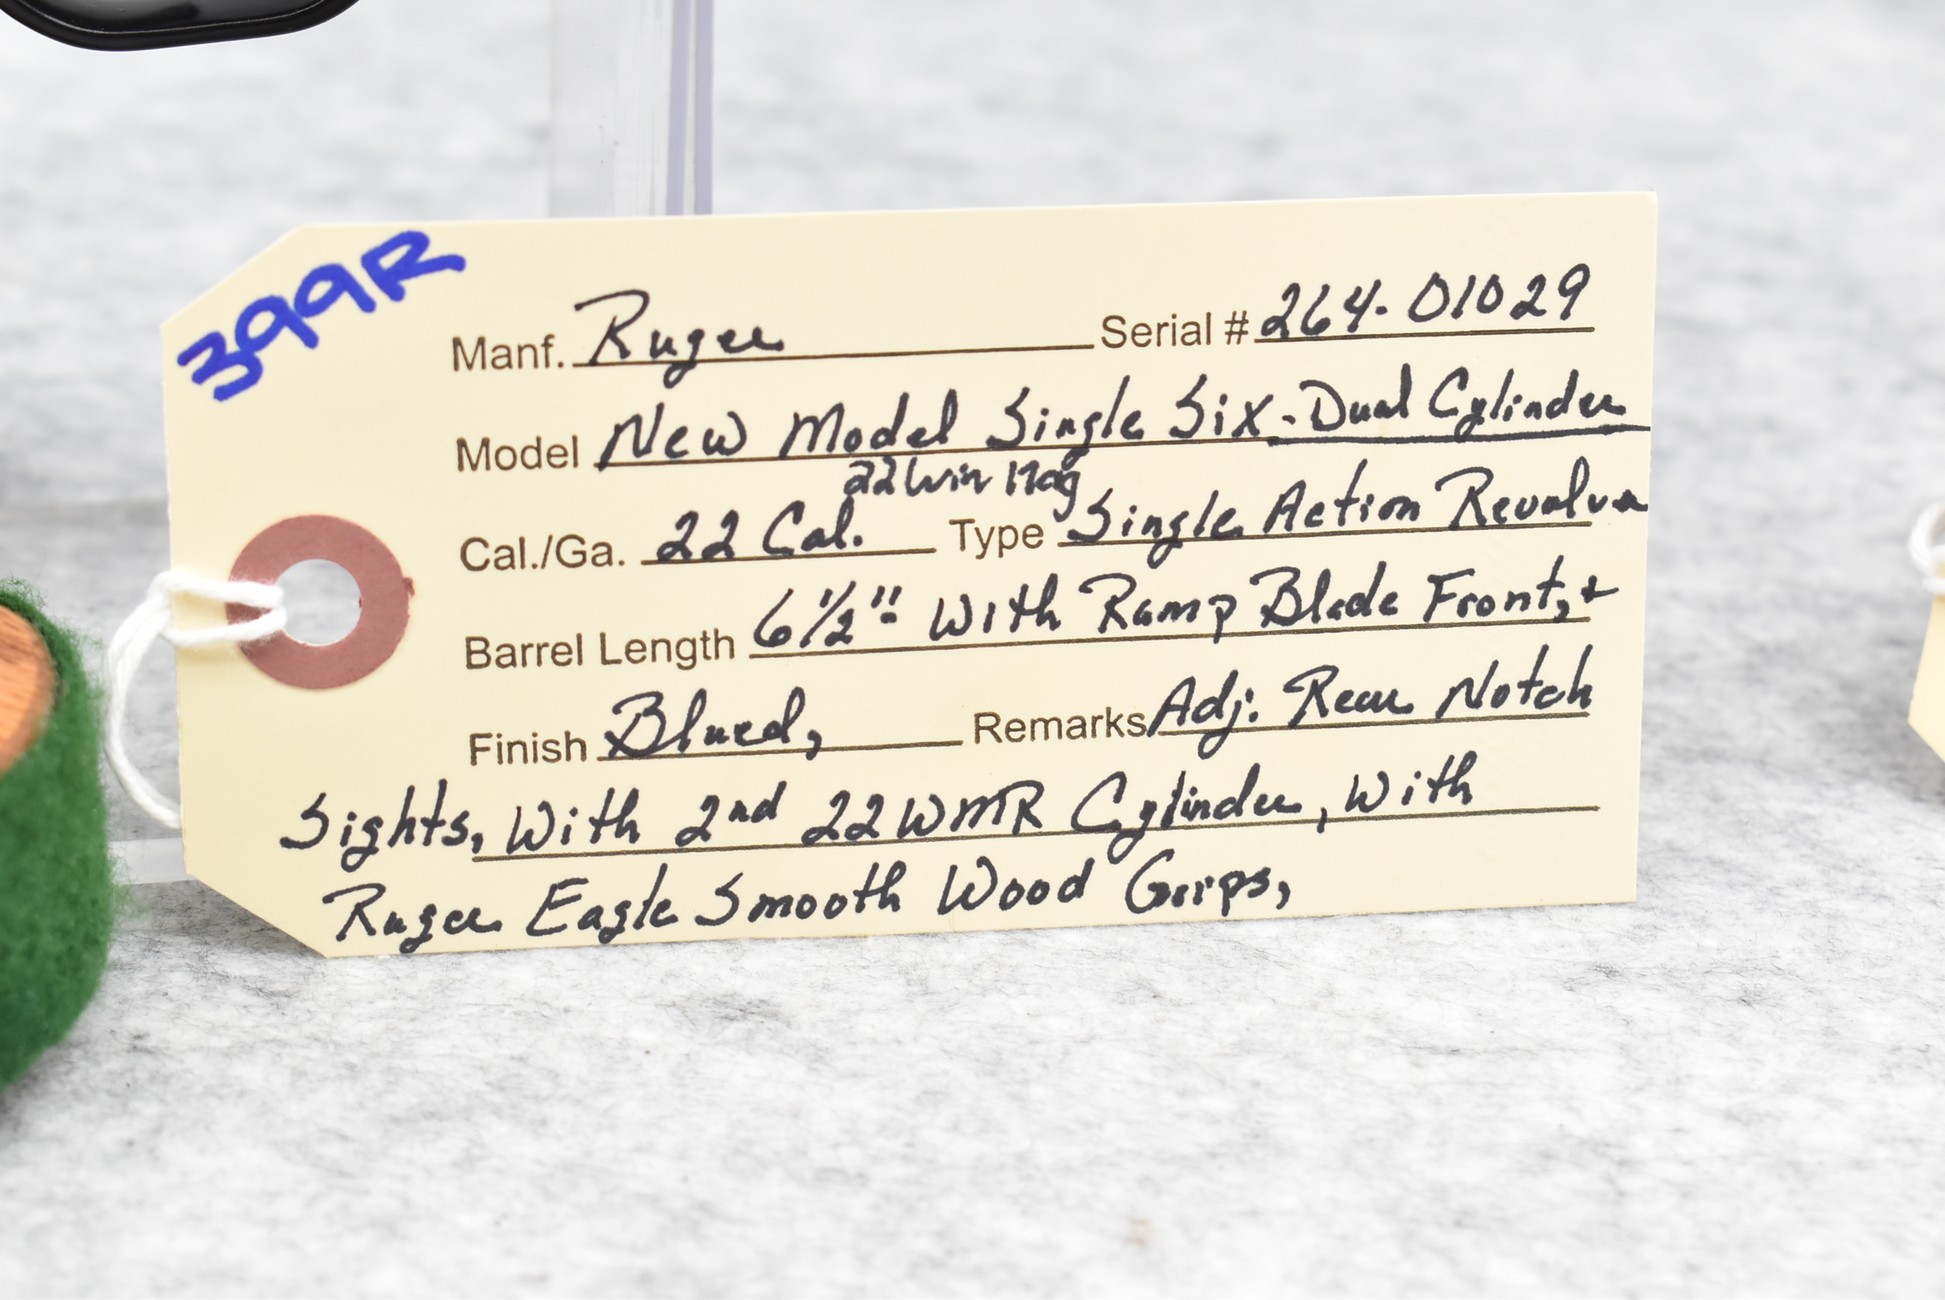 399R
Manf. Ruger Serial # 264-01029
Model New Model Single Six - Dual Cylinder
22 Win Mag
Cal./Ga. 22 Cal. Type Single Action Revolver
Barrel Length 6 1/2" With Ramp Blade Front, +
Finish Blued, Remarks Adj. Rear Notch
Sights, With 2nd 22 WMR Cylinder, With
Ruger Eagle Smooth Wood Grips,